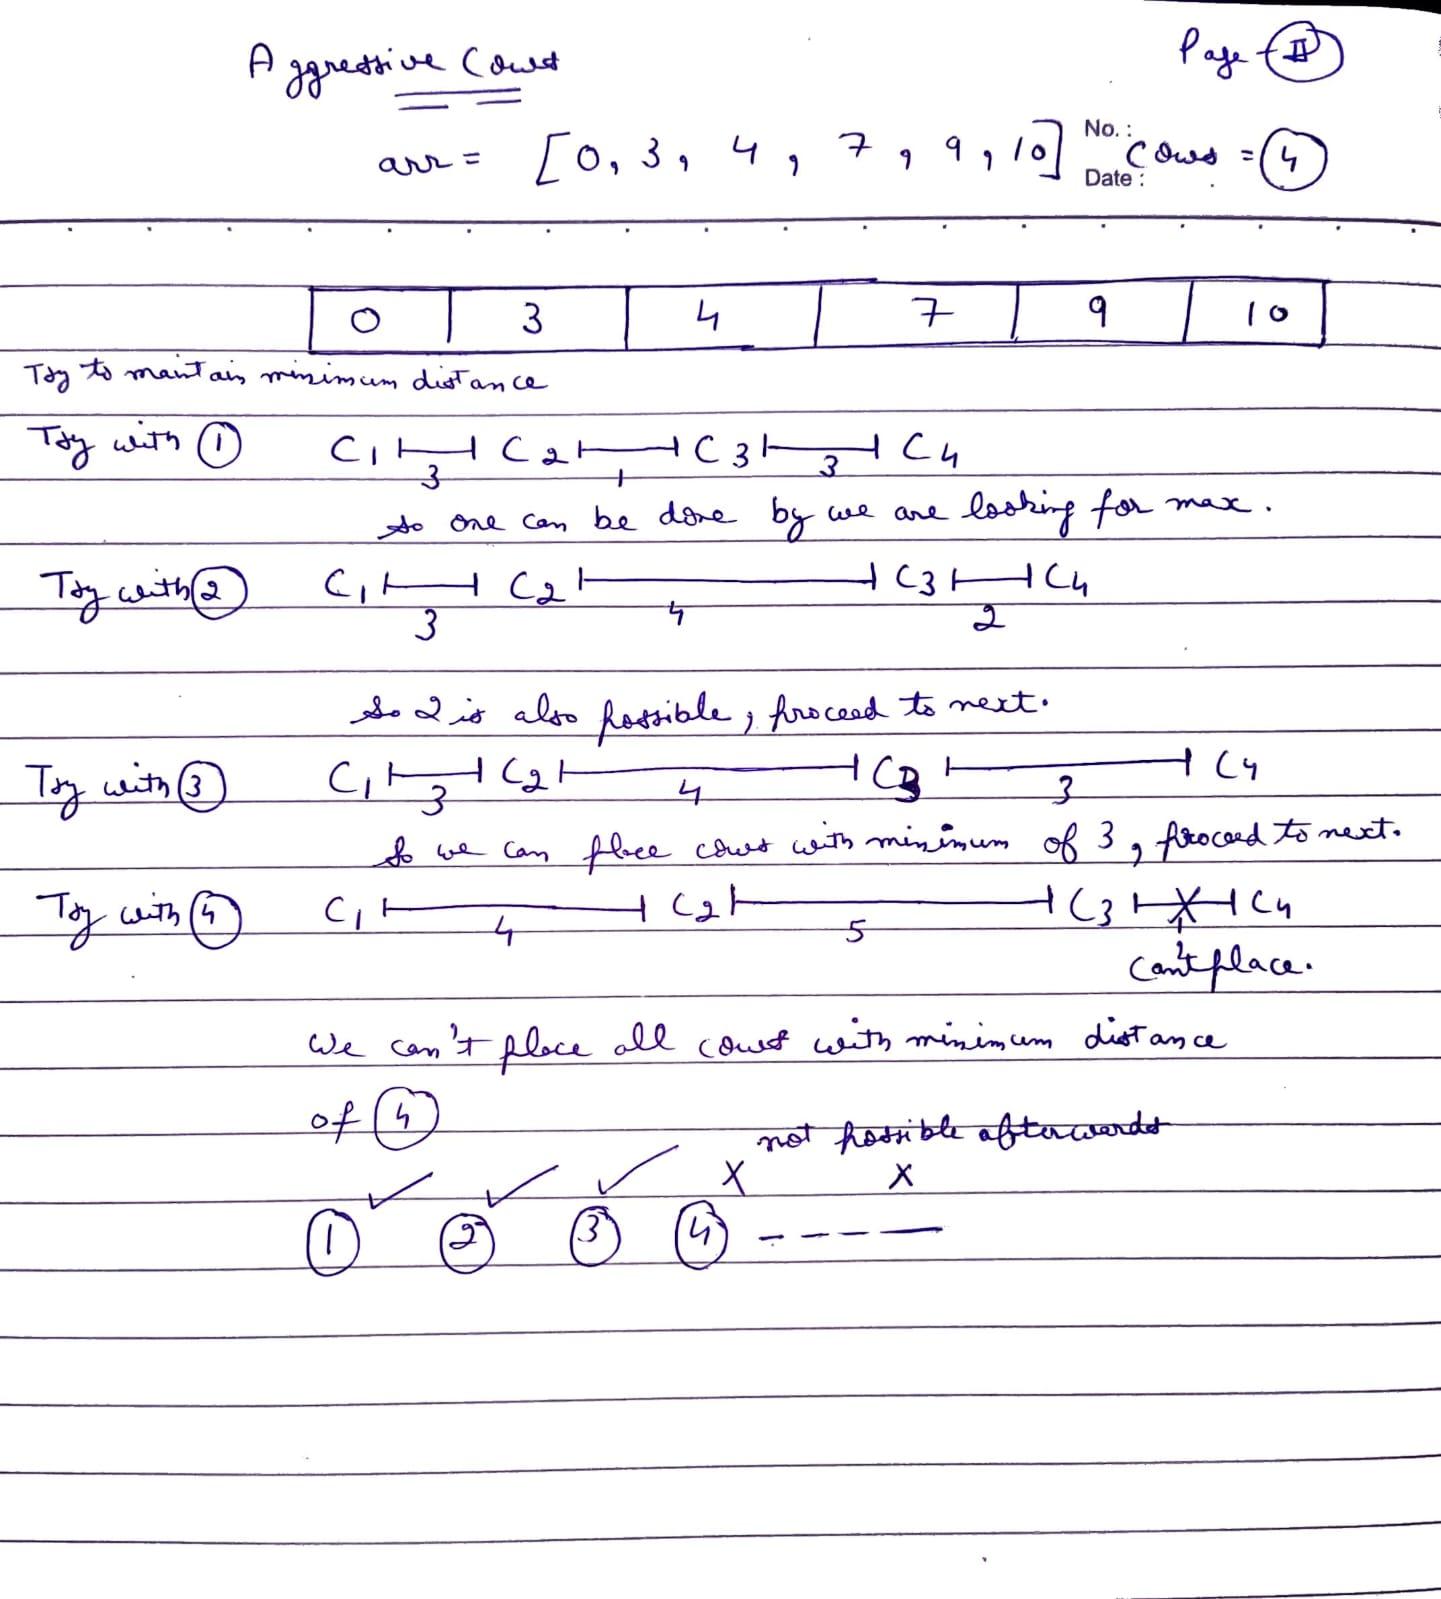 Aggressive Cows
Page - II
arr = [0, 3, 4, 7, 9, 10] No. : Date : Cows = 4
0 3 4 7 9 10
Try to maintain minimum distance
Try with 1 C1 3 C2 1 C3 3 C4
so one can be done by we are looking for max.
Try with 2 C1 3 C2 4 C3 2 C4
So 2 is also possible, proceed to next.
Try with 3 C1 3 C2 4 C3 3 C4
So we can place cows with minimum of 3, proceed to next.
Try with 4 C1 4 C2 5 C3 X 1 C4
Can't place.
We can't place all cows with minimum distance
of 4
not possible afterwards
✓ ✓ ✓ X X
1 2 3 4 - - - - -